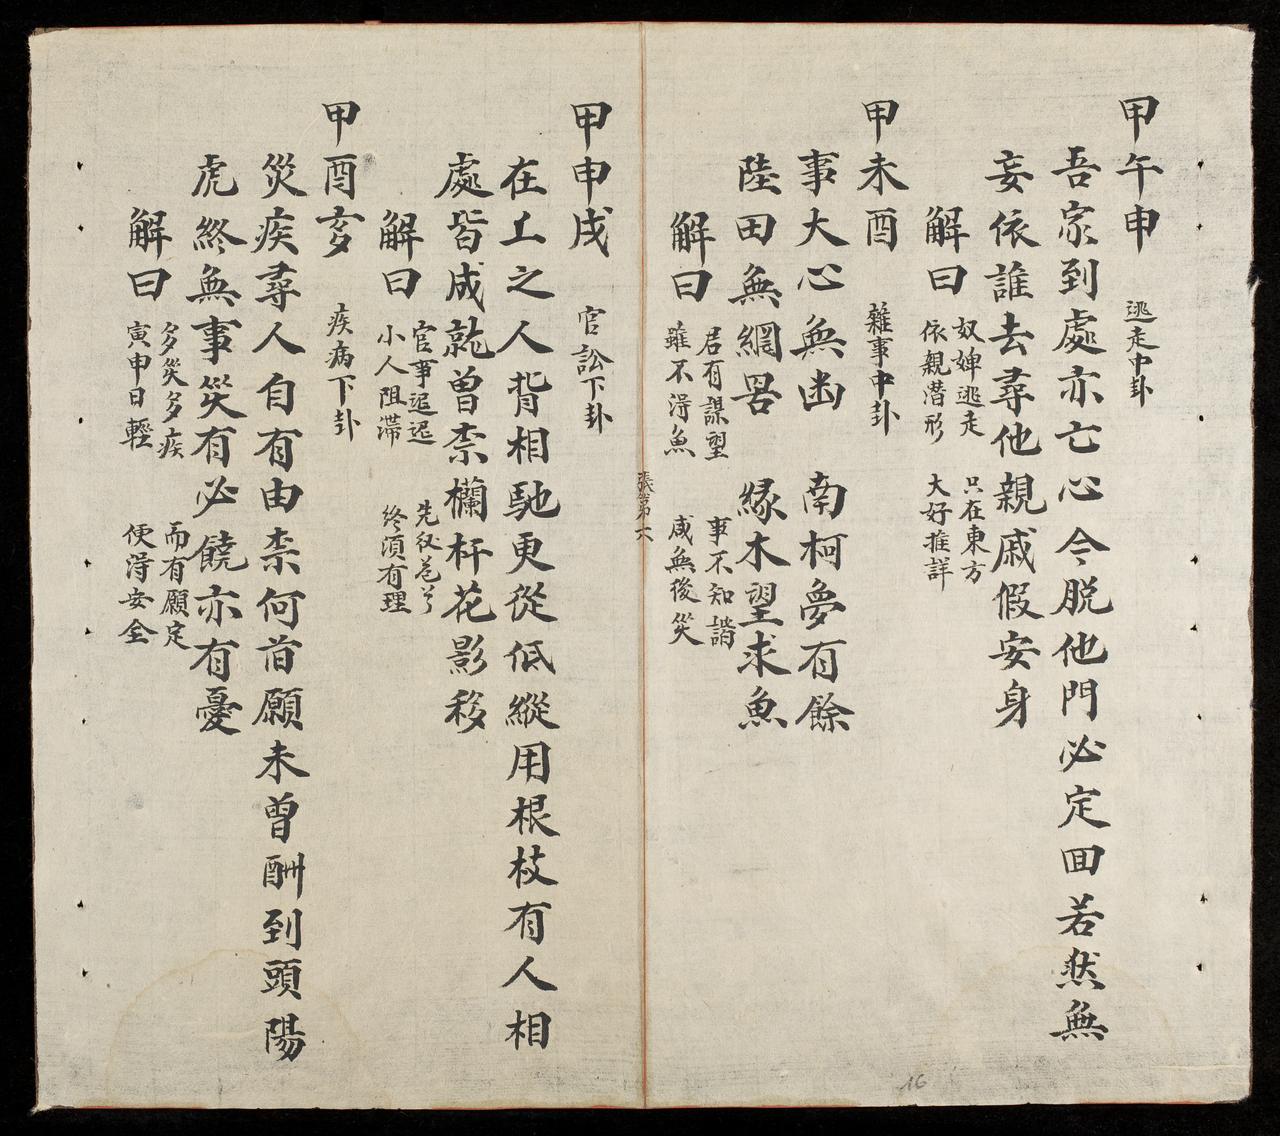 甲午申 逃走中卦
吾家到處亦亡心今脱他門必定囬若然無
妄依誰去尋他親戚假安身
解曰 奴婢逃走 只在東方
依親潜形 大好推詳
甲未酉 雜事中卦
事大心無凶 南柯夢有餘
陸田無網罟 緣木望求魚
解曰 君有謀望 事不知諧
雖不淂魚 咸無後災
張第六
甲申戌 官訟下卦
在工之人背相馳更從低縱用根枝有人相
處皆成就曾柰欄杆花影移
解曰 官事遲遲
小人阻滯 終湏有理
甲酉亥 疾病下卦
災疾尋人自有由柰何首願未曾酬到頭陽
虎終無事災有必饒亦有憂
解曰 多災多疾 而有願定
寅申日輕 便淂安全
16